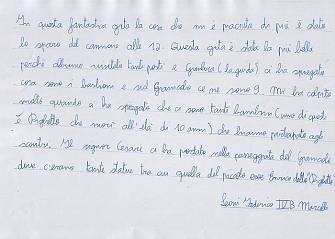 In questa fantastica gita la cosa che mi è piaciuta di più è stato
lo sparo del cannone alle 12. Questa gita è stata la più bella
perché abbiamo visitato tanti posti e Gianluca (la guida) ci ha spiegato
cosa sono i bastioni e sul Gianicolo ce ne sono 9. Mi ha colpito
molto quando ha spiegato che ci sono tanti bambini (uno di questi
è Righetto che morì all'età di 10 anni) che hanno partecipato agli
scontri. Il signor Cesare ci ha portato nella passeggiata del Gianicolo
dove c'erano tante statue tra cui quella del piccolo Enrico detto (Righetto)
Leoni Federico IV B Marcello